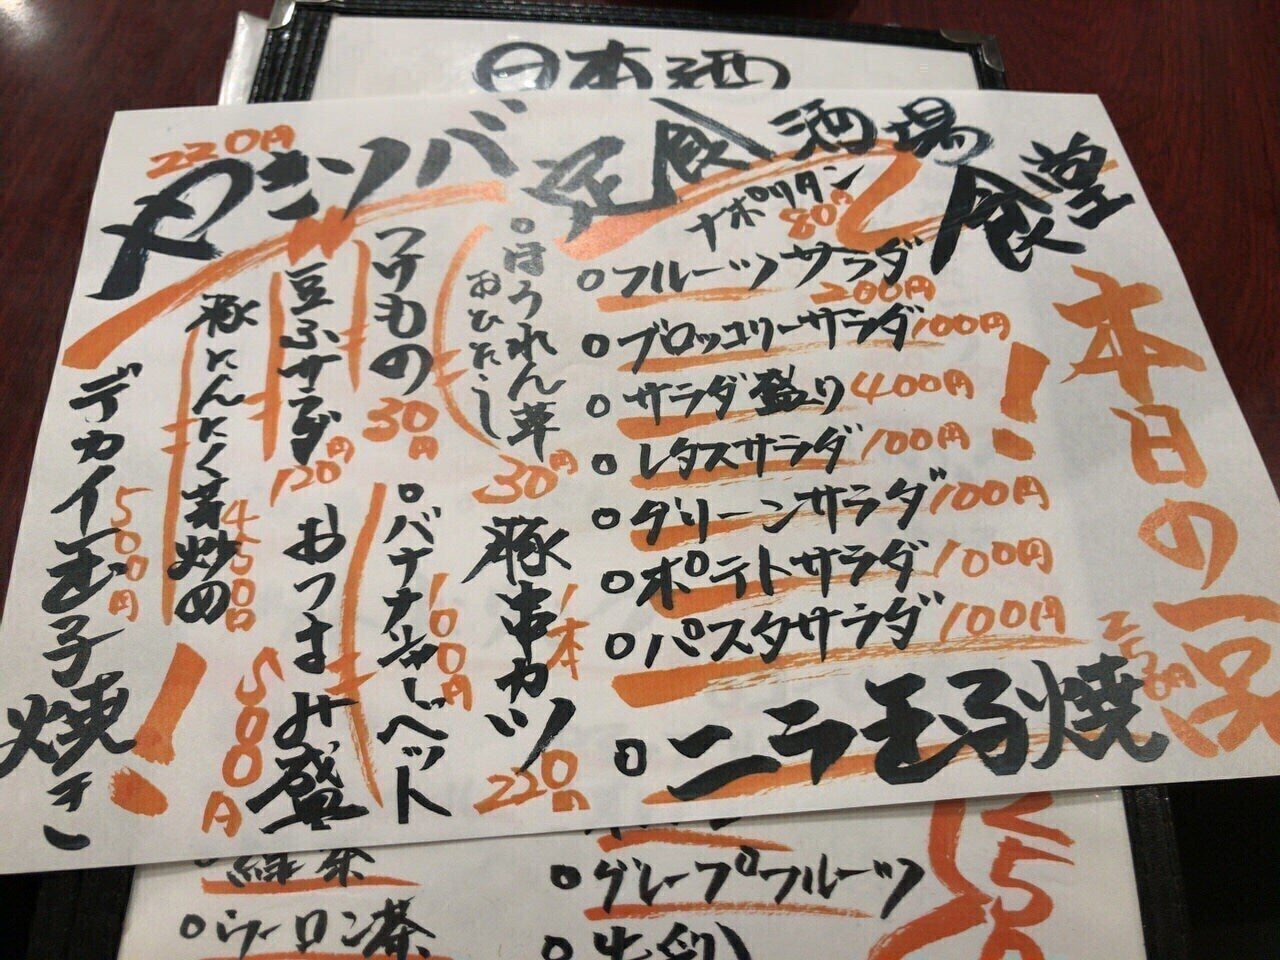 日本酒
定食酒場食堂
本日の一品
ナポリタン
80円
○フルーツサラダ
200円
○ブロッコリーサラダ100円
○サラダ盛り400円
○レタスサラダ100円
○グリーンサラダ100円
○ポテトサラダ100円
○パスタサラダ100円
○ニラ玉子焼
250円
○ほうれん草
おひたし
30円
豚串カツ
1本
220円
つけもの
30円
○バナナシャーベット
100円
豆ふサラダ
120円
おつまみ盛
500円
豚にんにく芽炒め
450円
やきソバ
220円
デカイ玉子焼き!
500円
緑茶
○ウーロン茶
○グレープフルーツ